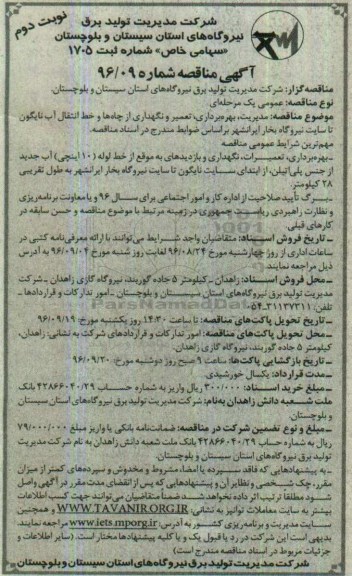 نوبت دوم
شرکت مدیریت تولید برق
نیروگاه‌های استان سیستان و بلوچستان
«سهامی خاص» شماره ثبت ۱۷۰۵
آگهی مناقصه شماره ۹۶/۰۹
مناقصه‌گزار: شرکت مدیریت تولید برق نیروگاه‌های استان سیستان و بلوچستان.
نوع مناقصه: عمومی یک مرحله‌ای
موضوع مناقصه: مدیریت، بهره‌برداری، تعمیر و نگهداری از چاه‌ها و خط انتقال آب نایگون
تا سایت نیروگاه بخار ایرانشهر براساس ضوابط مندرج در اسناد مناقصه.
مهم‌ترین شرایط عمومی مناقصه
ـ بهره‌برداری، تعمیرات، نگهداری و بازدیدهای به موقع از خط لوله (۱۰ اینچی) آب جدید
از جنس پلی‌اتیلن، از ابتدای سایت نایگون تا سایت نیروگاه بخار ایرانشهر به طول تقریبی
۲۸ کیلومتر.
ـ برگ تأیید صلاحیت از اداره کار و امور اجتماعی برای سال ۹۶ و یا معاونت برنامه‌ریزی
و نظارت راهبردی ریاست جمهوری در زمینه مرتبط با موضوع مناقصه و حسن سابقه در
کارهای قبلی.
ـ تاریخ فروش اسناد: متقاضیان واجد شرایط می‌توانند با ارائه معرفی‌نامه کتبی در
ساعات اداری از روز چهارشنبه مورخ ۹۶/۰۸/۲۴ لغایت روز شنبه مورخ ۹۶/۰۹/۰۴ به آدرس
ذیل مراجعه نمایند.
ـ محل فروش اسناد: زاهدان ـ کیلومتر ۵ جاده گوربند، نیروگاه گازی زاهدان ـ شرکت
مدیریت تولید برق نیروگاه‌های استان سیستان و بلوچستان ـ امور تدارکات و قراردادها ـ
تلفن: ۳۱۱۳۷۳۱۱-۰۵۴
ـ تاریخ تحویل پاکت‌های مناقصه: تا ساعت ۱۴:۳۰ روز یکشنبه مورخ: ۹۶/۰۹/۱۹
ـ محل تحویل پاکت‌های مناقصه: امور تدارکات و قراردادهای شرکت به نشانی: زاهدان،
کیلومتر ۵ جاده گوربند، نیروگاه گازی زاهدان.
ـ تاریخ بازگشایی پاکت‌ها: ساعت ۹ صبح روز دوشنبه مورخ: ۹۶/۰۹/۲۰
ـ مدت قرارداد: یکسال خورشیدی.
ـ مبلغ خرید اسناد: ۳۰۰/۰۰۰ ریال واریز به شماره حساب ۴۲۸۶۶۰۴۰/۲۹ بانک
ملت شعبه دانش زاهدان به‌نام: شرکت مدیریت تولید برق نیروگاه‌های استان سیستان
و بلوچستان.
ـ مبلغ و نوع تضمین شرکت در مناقصه: ضمانت‌نامه بانکی یا واریز مبلغ ۷۹/۰۰۰/۰۰۰
ریال به شماره حساب ۴۲۸۶۶۰۴۰/۲۹ بانک ملت شعبه دانش زاهدان به نام شرکت مدیریت
تولید برق نیروگاه‌های استان سیستان و بلوچستان.
ـ به پیشنهادهایی که فاقد سپرده یا امضا، مشروط و مخدوش و سپرده‌های کمتر از میزان
مقرر، چک شخصی و نظایر آن و پیشنهادهایی که پس از انقضای مدت مقرر در آگهی واصل
شود مطلقا ترتیب اثر داده نخواهد شد. ضمنا متقاضیان می‌توانند جهت کسب اطلاعات
بیشتر به سایت معاملات توانیر به نشانی: WWW.TAVANIR.ORG.IR و همچنین
سایت مدیریت و برنامه‌ریزی کشور به آدرس: www.iets.mporg.ir مراجعه نمایند.
بدیهی است این شرکت در رد یا قبول یک و یا کلیه پیشنهادها مختار است. (سایر اطلاعات و
جزئیات مربوط در اسناد مناقصه مندرج است)
شرکت مدیریت تولید برق نیروگاه‌های استان سیستان و بلوچستان